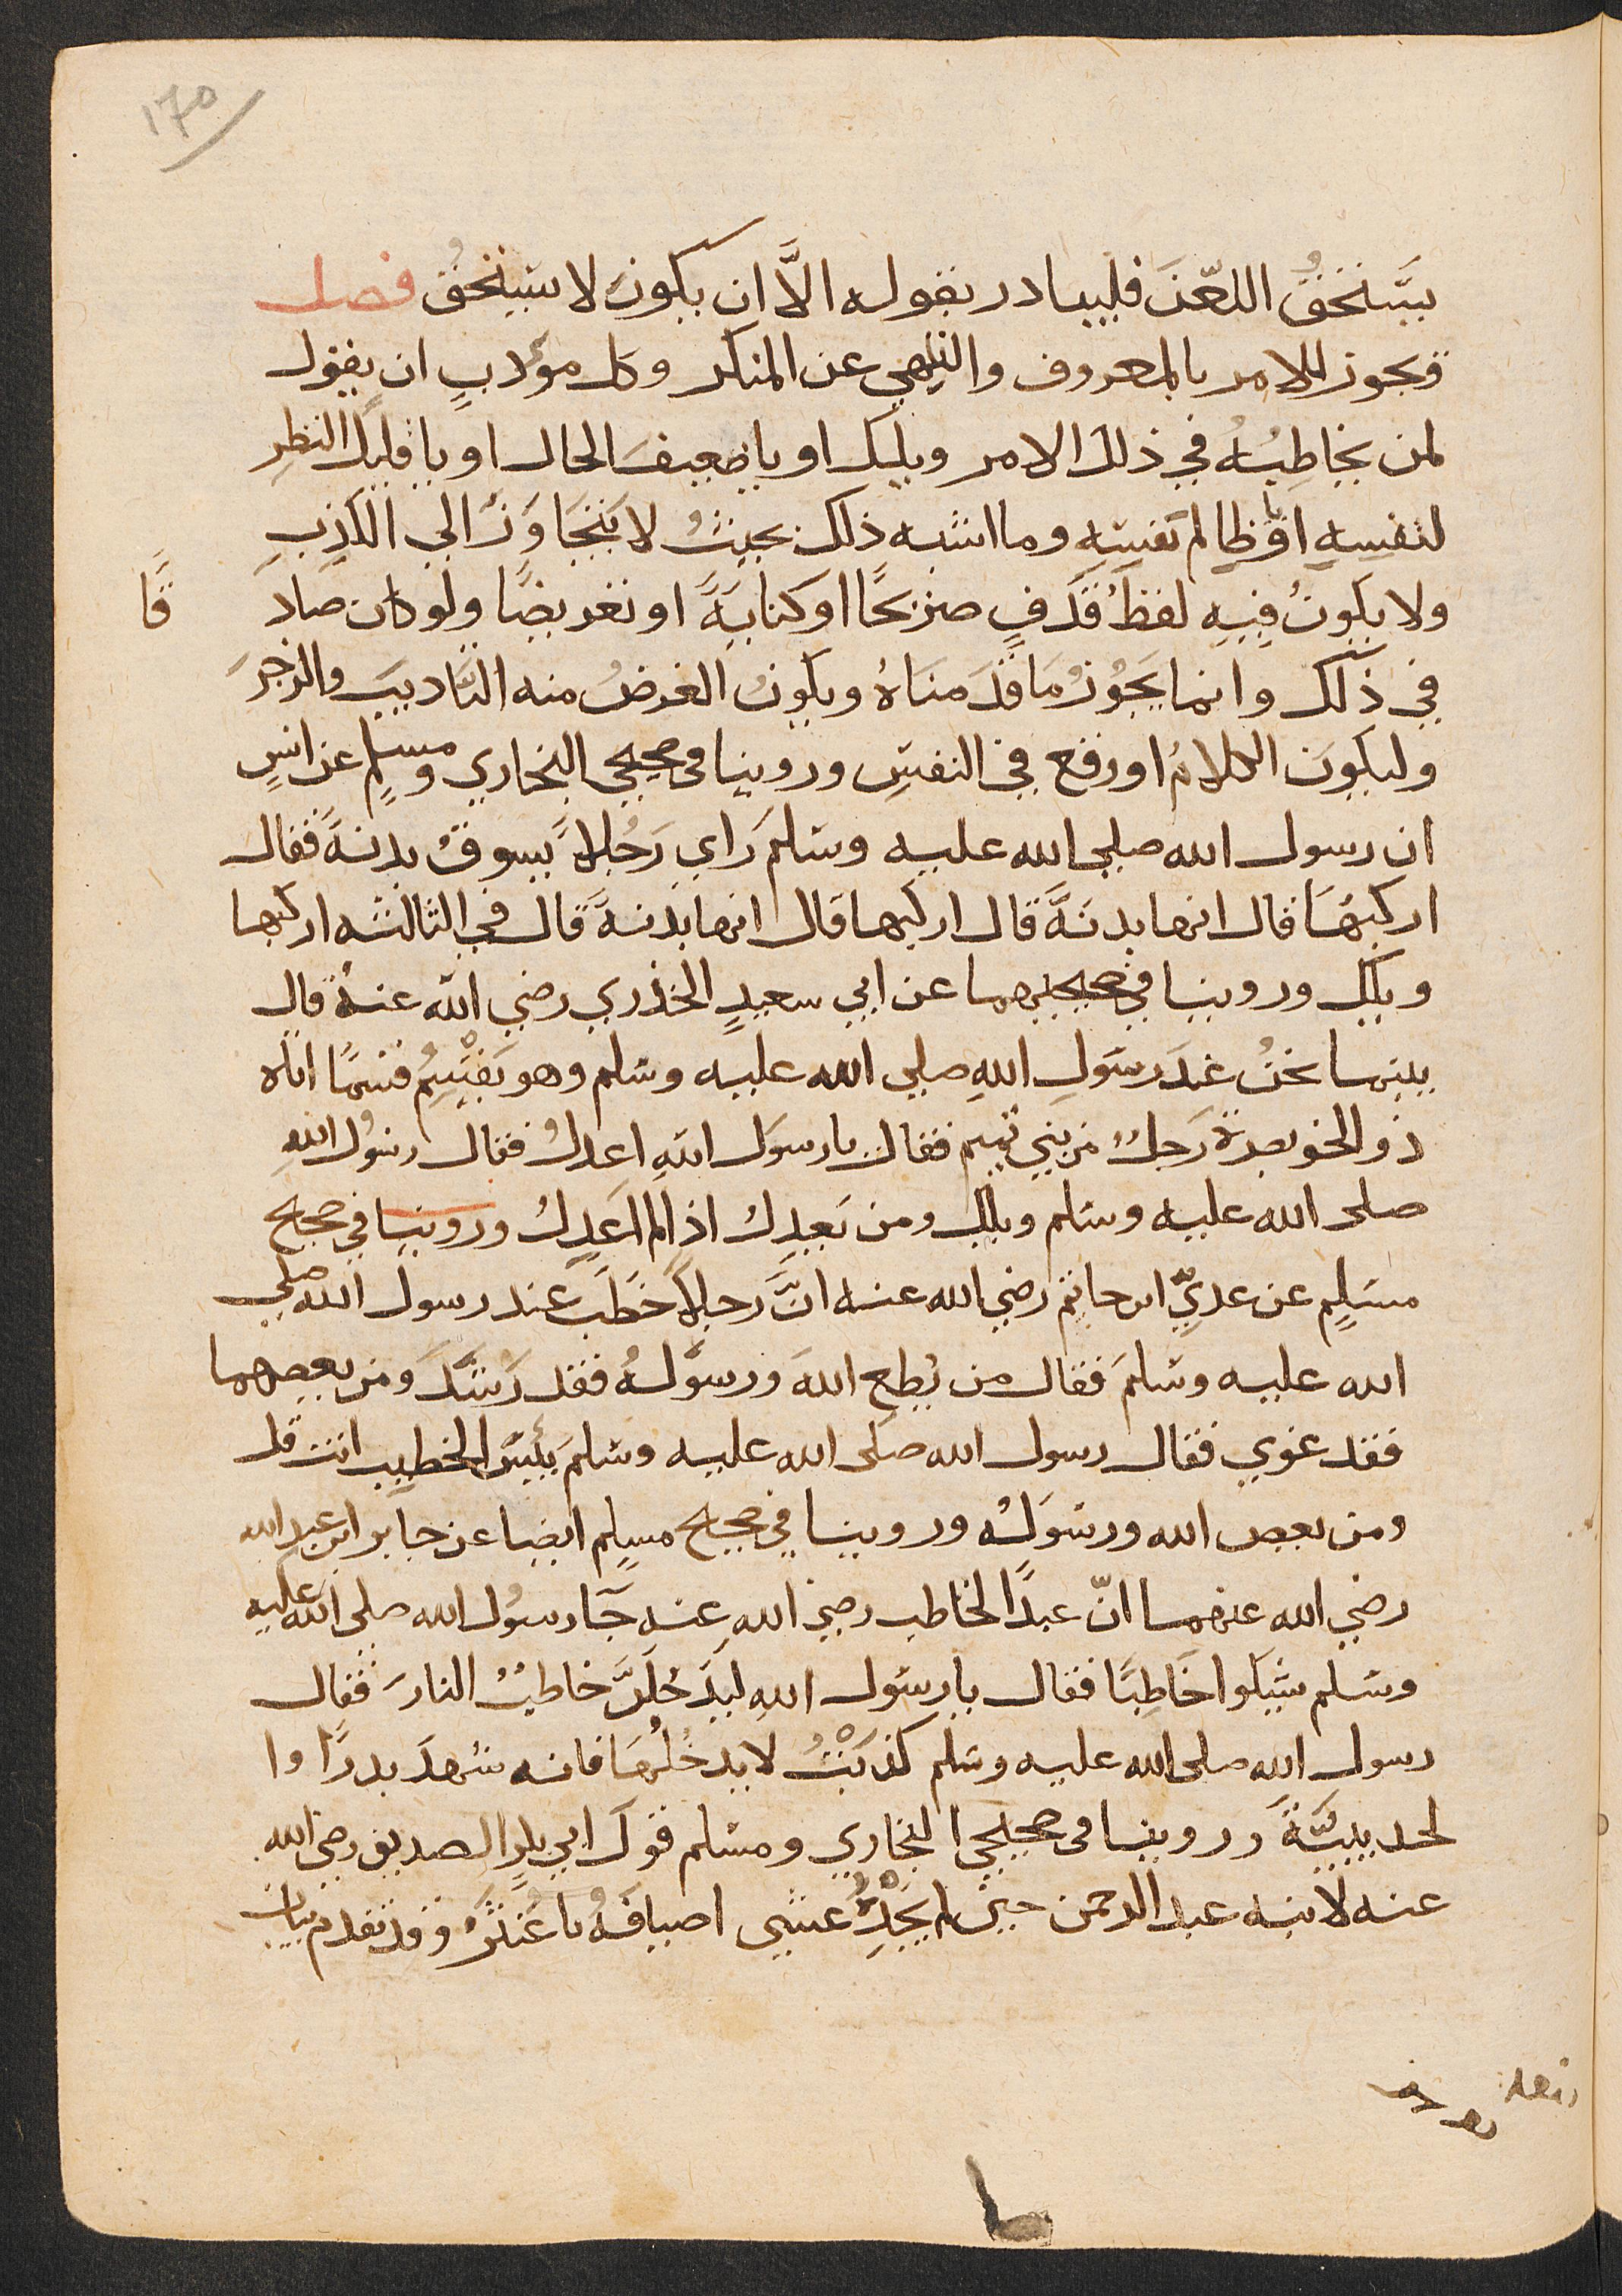 ١٧٥
يستحق اللعن فليبادر بقوله الا ان يكون لا يستحق فصل
ويجوز للامر بالمعروف والنهي عن المنكر وكل مؤدب ان يقول
لمن يخاطبه في ذلك الامر ويلك او يا ضعيف الحال او يا قليل النظر
لنفسه او يا ظالم نفسه وما اشبه ذلك بحيث لا يتجاوز الي الكذب
ولا يكون فيه لفظ قذف صريحا او كناية او تعريضا ولو كان صادقا
في ذلك وانما يجوز ما قدمناه ويكون الغرض منه التاديب والزجر
وليكون الكلام اوقع في النفس وروينا في صحيحي البخاري ومسلم عن انس
ان رسول الله صلي الله عليه وسلم راي رجلا يسوق بدنة فقال
اركبها قال انها بدنة قال اركبها قال انها بدنة قال في الثالثه اركبها
ويلك وروينا في صحيحيهما عن ابي سعيد الخذري رضي الله عنه قال
بينما نحن عند رسول الله صلي الله عليه وسلم وهو يقسم قسما اتاه
ذو الخويصرة رجل من بني تميم فقال يا رسول الله اعدل فقال رسول الله
صلى الله عليه وسلم ويلك ومن يعدل اذا لم اعدل وروينا في صحيح
مسلم عن عدي ابن حاتم رضي الله عنه ان رجلا خطب عند رسول الله صلي
الله عليه وسلم فقال من يطع الله ورسوله فقد رشد ومن يعصهما
فقد غوي فقال رسول الله صلى الله عليه وسلم بئس الخطيب انت قل
ومن يعص الله ورسوله وروينا في صحيح مسلم ايضا عن جابر ابن عبد الله
رضي الله عنهما ان عبدا لخاطب رضي الله عنه جا رسول الله صلى الله عليه
وسلم يشكوا خاطبا فقال يا رسول الله ليدخلن خاطب النار فقال
رسول الله صلى الله عليه وسلم كذبت لا يدخلها فانه شهد بدرا وا
لحديبية وروينا في صحيحي البخاري ومسلم قول ابي بكر الصديق رضي الله
عنه لابنه عبد الرحمن حين لم يجده عشي اضيافه يا غنثر وقد تقدم بيان